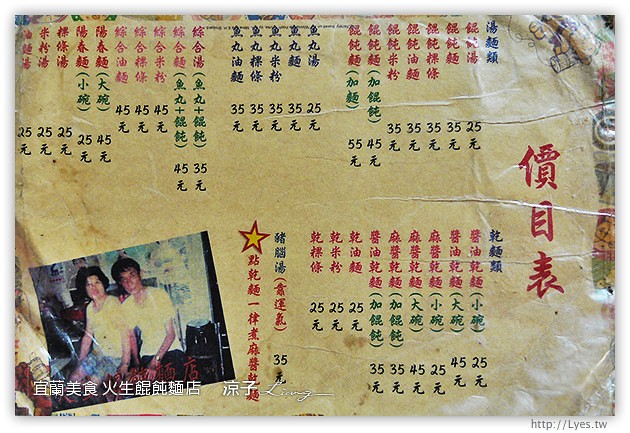 價目表
湯麵類
餛飩湯 25元
餛飩麵 35元
餛飩粿條 35元
餛飩油麵 35元
餛飩米粉 35元
餛飩麵(加餛飩) 45元
餛飩麵(加麵) 55元
魚丸湯 25元
魚丸麵 35元
魚丸米粉 35元
魚丸粿條 35元
魚丸油麵 35元
綜合湯(魚丸+餛飩) 35元
綜合麵(魚丸+餛飩) 45元
綜合米粉 45元
綜合粿條 45元
綜合油麵 45元
陽春麵(大碗) 45元
陽春麵(小碗) 25元
粿條湯 25元
米粉湯 25元
油麵湯 25元
乾麵類
醬油乾麵(小碗) 25元
醬油乾麵(大碗) 45元
麻醬乾麵(小碗) 25元
麻醬乾麵(大碗) 45元
麻醬乾麵(加餛飩) 35元
醬油乾麵(加餛飩) 35元
乾油麵 25元
乾米粉 25元
乾粿條 25元
豬腦湯(看運氣) 35元
點乾麵一律煮麻醬乾麵
宜蘭美食 火生餛飩麵店 涼子 Liang
http://Lyes.tw